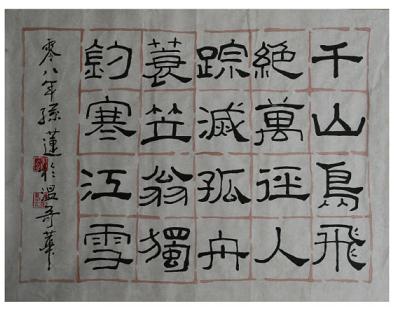 千山鳥飛
絕萬徑人
踪滅孤舟
蓑笠翁獨
釣寒江雪
零八年孫蓮於温哥華